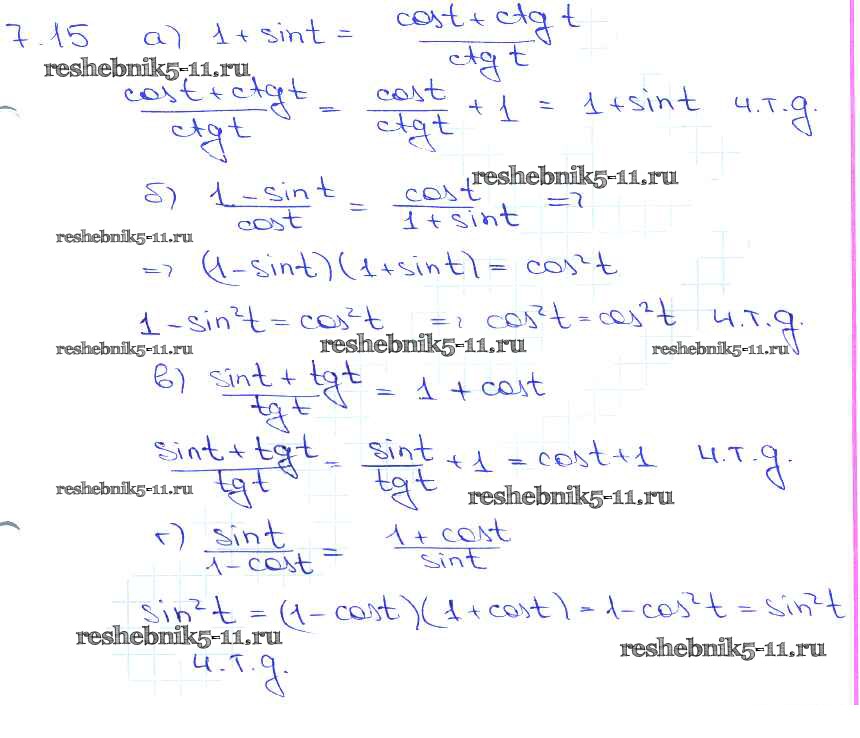 7.15 а) 1 + sint = (cost + ctg t)/(ctg t)
reshebnik5-11.ru
(cost + ctgt)/(ctgt) = cost/ctgt + 1 = 1 + sint ч.т.д.
reshebnik5-11.ru
б) (1 - sint)/cost = cost/(1 + sint) =>
reshebnik5-11.ru
=> (1 - sint)(1 + sint) = cos²t
1 - sin²t = cos²t => cos²t = cos²t ч.т.д.
reshebnik5-11.ru reshebnik5-11.ru reshebnik5-11.ru
в) (sint + tgt)/(tgt) = 1 + cost
(sint + tgt)/(tgt) = sint/tgt + 1 = cost + 1 ч.т.д.
reshebnik5-11.ru reshebnik5-11.ru
г) sint/(1 - cost) = (1 + cost)/sint
sin²t = (1 - cost)(1 + cost) = 1 - cos²t = sin²t
reshebnik5-11.ru reshebnik5-11.ru
ч.т.д.